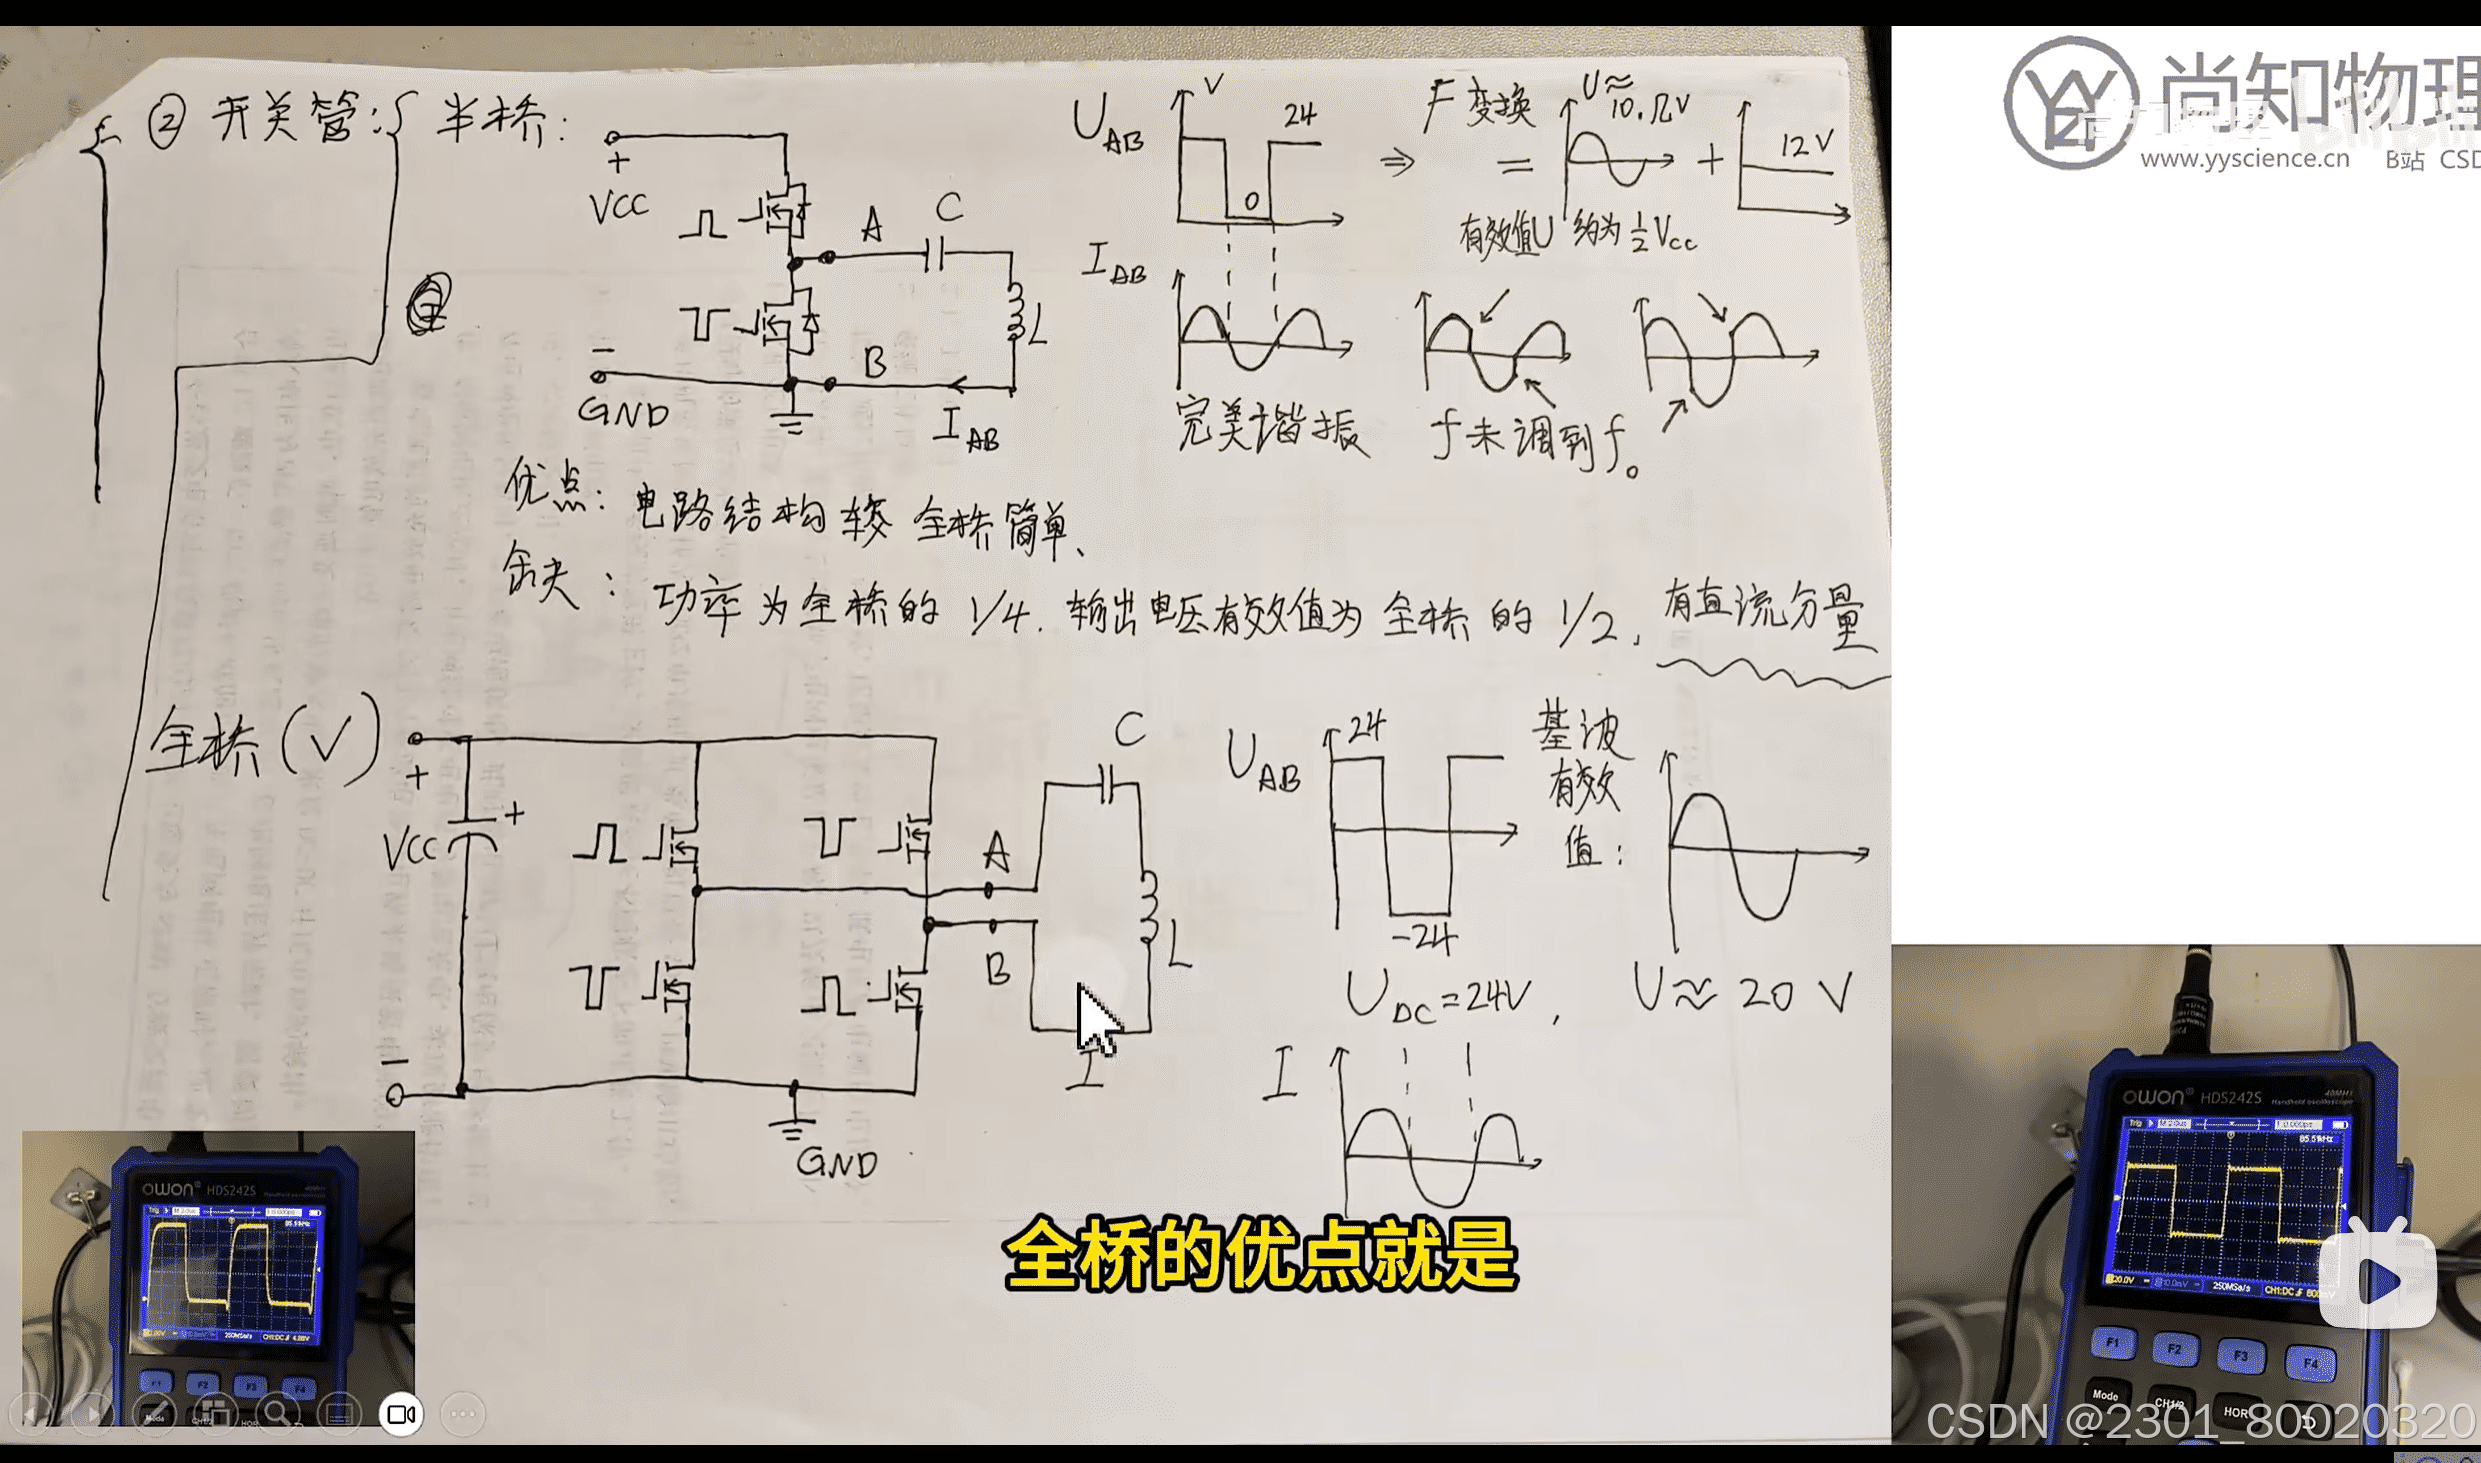 ② 开关管：
半桥：
+
VCC
−
GND
A
C
L
B
I AB
U AB
V
24
0
⇒
F变换
=
U≈
10.Ω V
+
12V
有效值U 约为 ½ Vcc
I AB
完美谐振
f未调到f。
优点：电路结构较全桥简单、
余夹：功率为全桥的 1/4. 输出电压有效值为 全桥 的 1/2, 有直流分量
全桥(√)
+
VCC
+
−
GND
A
B
C
L
I
U AB
24
-24
U DC=24V,
基波
有效
值：
U≈20 V
I
全桥的优点就是
尚知物理
www.yyscience.cn B站 CSD
owon HDS242S
F1 F2 F3 F4
owon HDS242S
40MHz
Handheld oscilloscope
Trig
85.51kHz
20.0V
250MSa/s
F1 F2 F3 F4
Mode
CH1/2
HOR
CSDN @2301_80020320